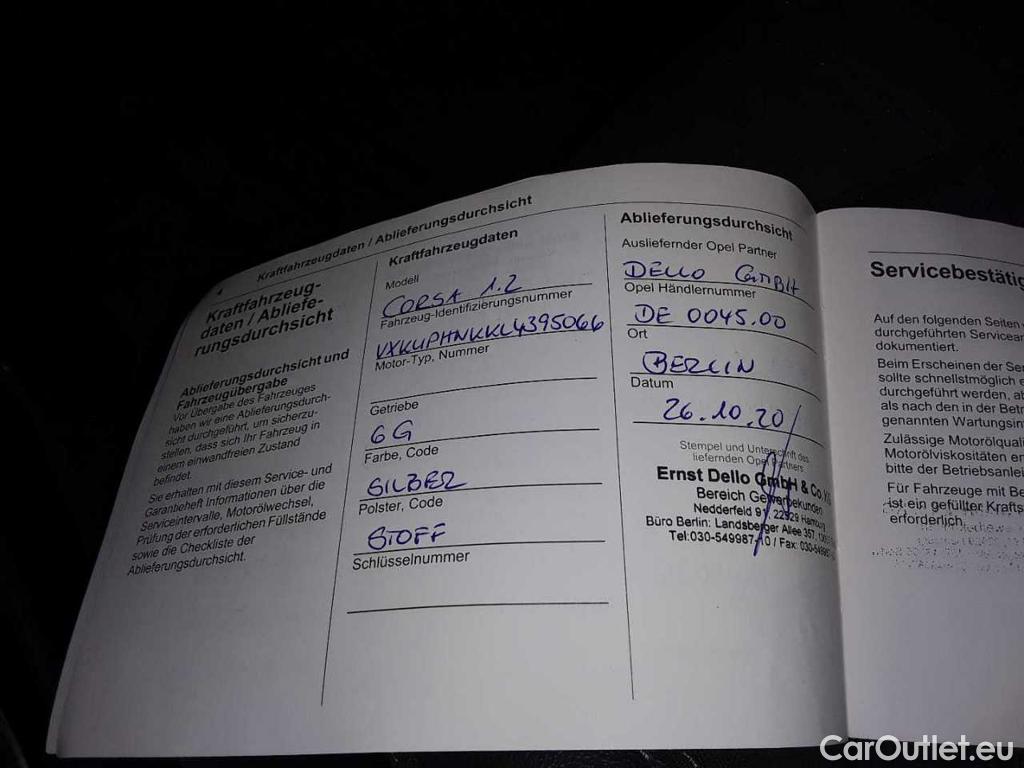 4
Kraftfahrzeugdaten / Ablieferungsdurchsicht
Kraftfahrzeug-
daten / Abliefe-
rungsdurchsicht
Ablieferungsdurchsicht und
Fahrzeugübergabe
Vor Übergabe des Fahrzeuges
haben wir eine Ablieferungsdurch-
sicht durchgeführt, um sicherzu-
stellen, dass sich Ihr Fahrzeug in
einem einwandfreien Zustand
befindet.
Sie erhalten mit diesem Service- und
Garantieheft Informationen über die
Serviceintervalle, Motorölwechsel,
Prüfung der erforderlichen Füllstände
sowie die Checkliste der
Ablieferungsdurchsicht.
Kraftfahrzeugdaten
Modell
CORSA 1.2
Fahrzeug-Identifizierungsnummer
VXKUPHNKKL4395066
Motor-Typ, Nummer
Getriebe
6G
Farbe, Code
SILBER
Polster, Code
STOFF
Schlüsselnummer
Ablieferungsdurchsicht
Ausliefernder Opel Partner
DELLO GmBH
Opel Händlernummer
DE 0045.00
Ort
BERLIN
Datum
26.10.20
Stempel und Unterschrift des
liefernden Opel Partners
Ernst Dello GmbH & Co. KG
Bereich Gewerbekunden
Nedderfeld 91, 22529 Hamburg
Büro Berlin: Landsberger Allee 357,
Tel:030-549987-10 / Fax: 030-549987
Servicebestätig
Auf den folgenden Seiten
durchgeführten Servicear
dokumentiert.
Beim Erscheinen der Ser
sollte schnellstmöglich e
durchgeführt werden, ab
als nach den in der Betri
genannten Wartungsin
Zulässige Motorölquali
Motorölviskositäten en
bitte der Betriebsanlei
Für Fahrzeuge mit Be
ist ein gefüllter Krafts
erforderlich.
CarOutlet.eu